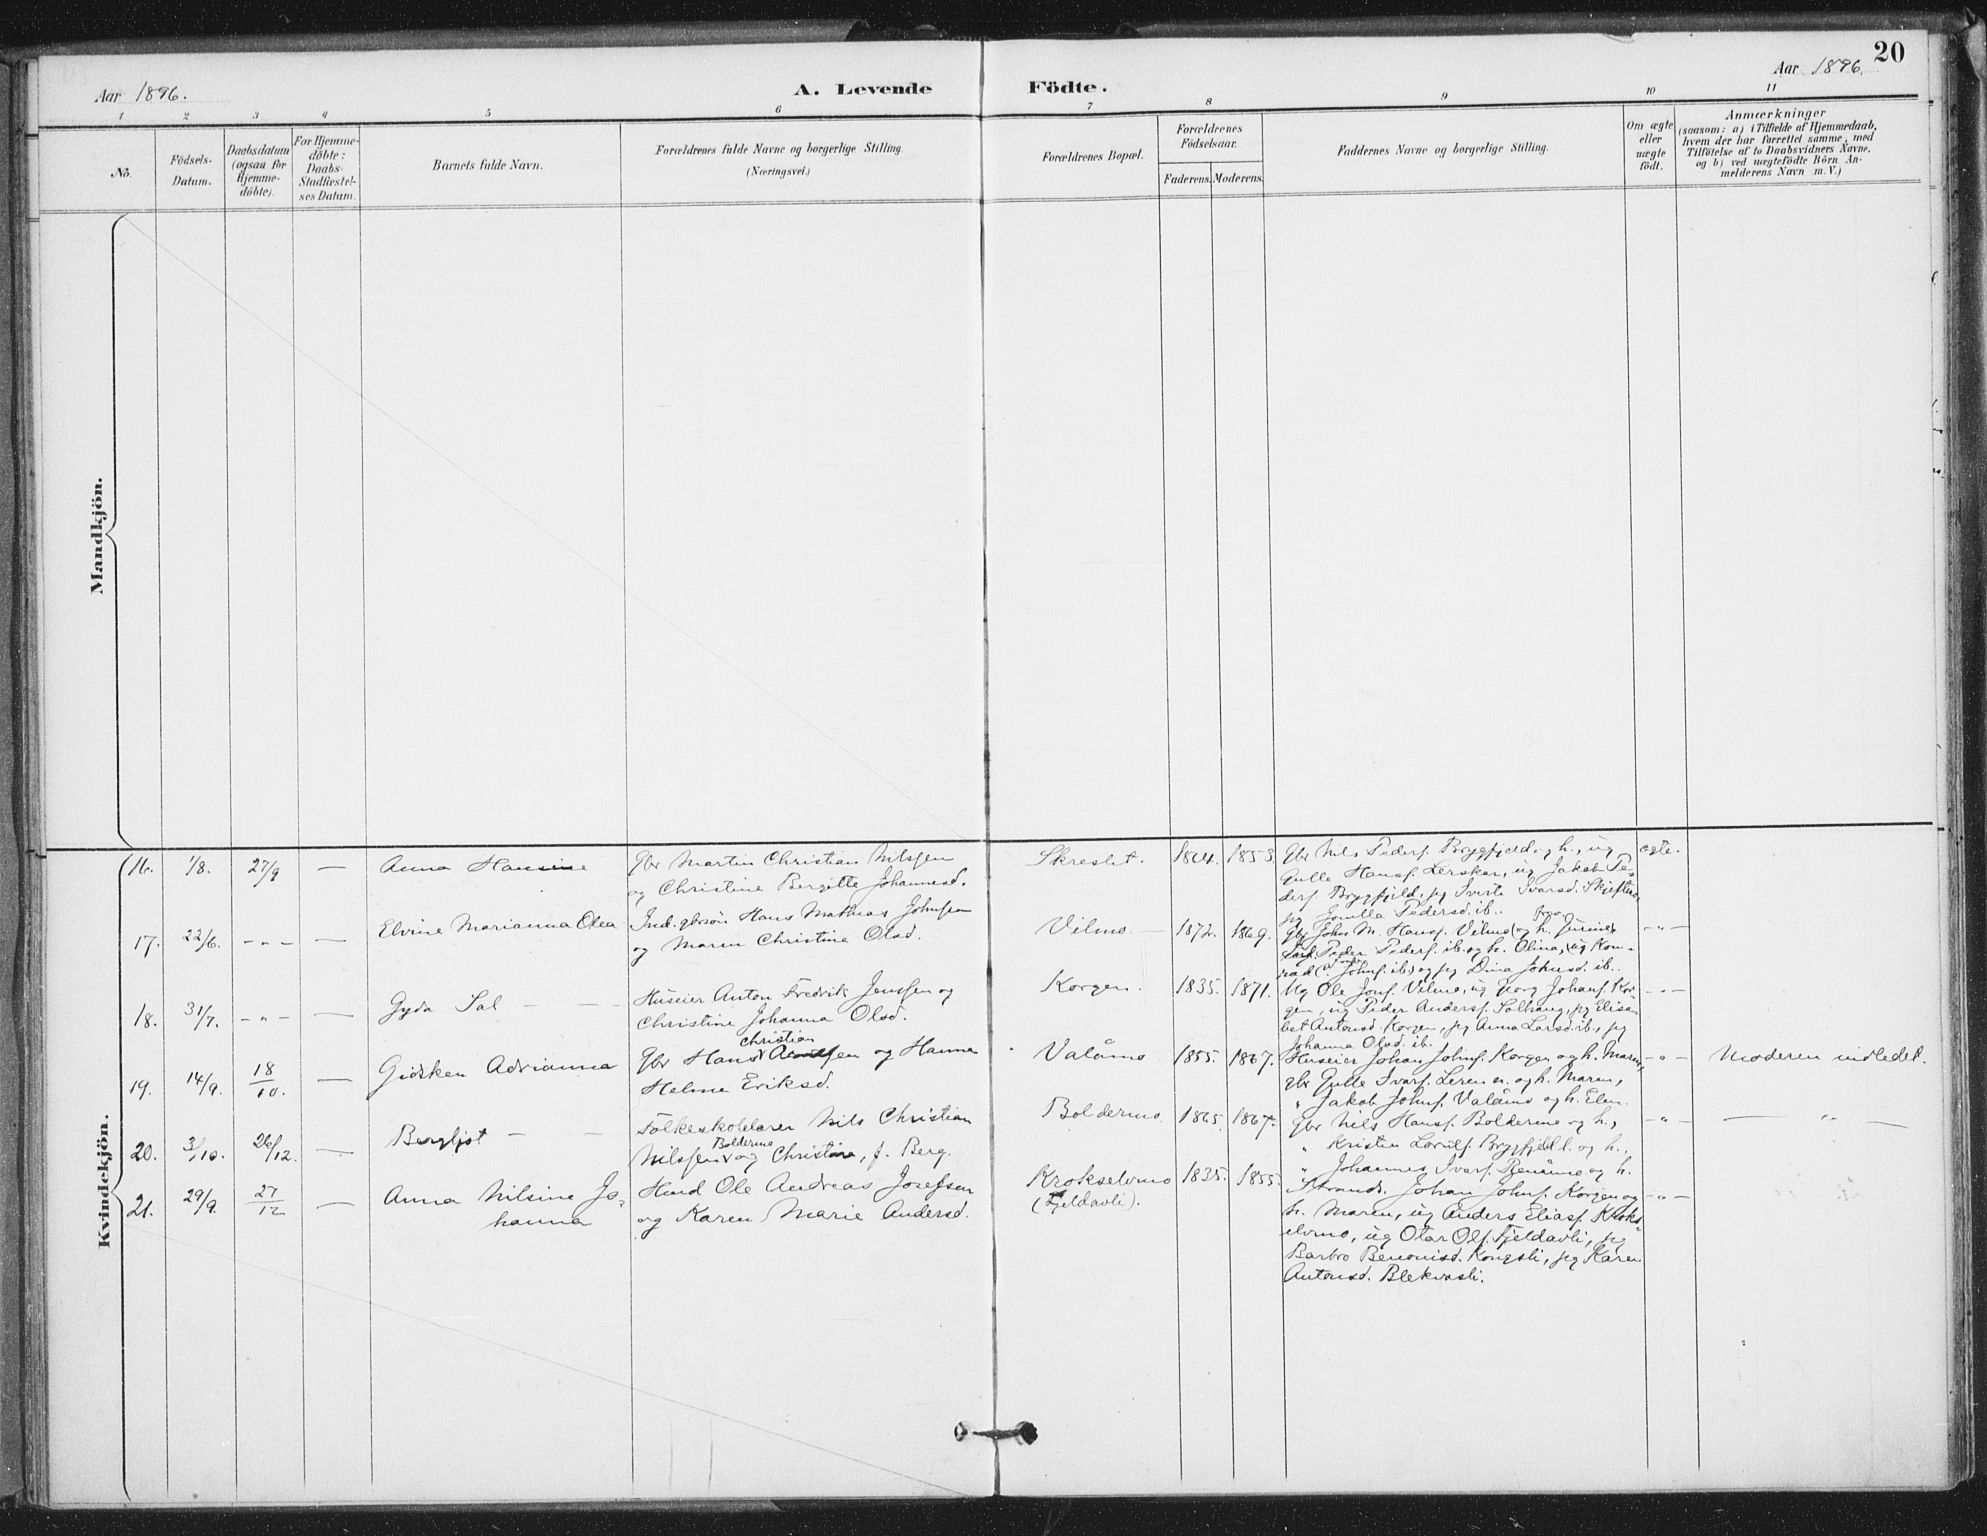 20
Aar 1896.
A. Levende Födte.
Aar 1896.
1 2 3 4 5 6 7 8 9 10 11
No.
Födsels-
Datum.
Daabsdatum
(ogsaa for
Hjemme-
döbte).
For Hjemme-
döbte:
Daabs-
Stadfæstel-
ses Datum.
Barnets fulde Navn.
Forældrenes fulde Navne og borgerlige Stilling.
(Næringsvei.)
Forældrenes Bopæl.
Forældrenes
Födselsaar.
Faderens. Moderens.
Faddernes Navne og borgerlige Stilling.
Om ægte
eller
uægte
födt.
Anmærkninger
(saasom: a) i Tilfælde af Hjemmedaab,
hvem der har forrettet samme, med
Tilföielse af to Daabsvidners Navne,
og b) ved uægtefödte Börn An-
melderens Navn m. V.)
Mandkjön.
Kvindekjön.
16. 1/8. 27/9 —
Anna Hansine
Gbr Martin Christian Nilsen
og Christine Bergitte Johannesd.
Skreslet. 1864. 1853.
Gbr Nils Peders. Bryggfjeld og h., ug
Gulle Hans. Lerskar, ug Jakob Pe-
ders. Bryggfjeld, pg Sivrte Ivarsd.
pg Pedersd. ib.
ægte.
17. 22/6. -"- —
Elvine Marianna Olea
Ind. gbrsön Hans Mathias Johnsen
og Maren Christine Olsd.
Vilmo. — 1872. 1869.
Gbr John M. Hans. Vilmo og h.
Peder Peders. ib. og h. Olina, ug Kon-
rad Johns. ib. og pg Dina Johnsd. ib.
-"-
18. 31/7. -"- —
Gyda Sal — —
Huseier Anton Fredrik Jensen og
Christine Johanna Olsd.
Korgen. 1835. 1871.
Ug Ole Jons. Vilmo, ug Georg Johans. Kor-
gen, ug Peder Anders. Solhaug, pg Elisa-
bet Antonsd. Korgen, pg Anna Larsd. ib., pg
Johanna Olsd. ib.
-"-
19. 14/9. 18/10. —
Gidsken Adrianna
Christian
Gbr Hans og Hanna
Helene Eriksd.
Valåmo 1855. 1867.
Huseier Johan Johns. Korgen og h. Maren,
Gbr Gulle Ivars. Leren n. og h. Maren,
" Jakob Johns. Valåmo og h. Elen.
-"-
Moderen indledet.
20. 3/10. 26/12. —
Bergljot — —
Folkeskolelærer Nils Christian
Boldermo
Nilsen og Christina, f. Berg.
Boldermo 1865. 1867.
Gbr Nils Hans. Boldermo og h.,
" Kristen Bryggfjeld l. og h.,
" Johannes Ivars. Renåmo og h.
-"-
— " —
21. 29/9. 27/12 —
Anna Nilsine Jo-
hanna
Husd Ole Andreas Josefsen
og Karen Marie Andersd.
Krokselvmo
(Fjeldavli).
1835. 1855.
Johan Johns. Korgen og
h. Maren, ug Anders Elias. Kroks-
elvmo, ug Otar Ols. Fjeldavli, pg
Barbro Benonisd. Kongsli, pg Karen
Antonsd. Blekvasli.
-"-